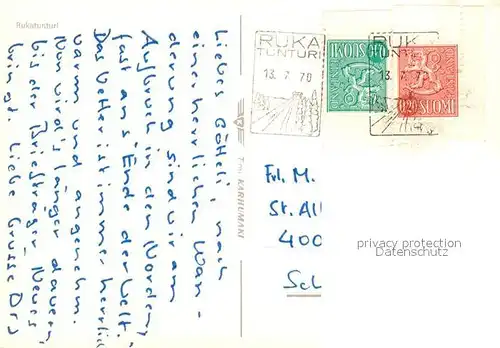 Rukatunturi
Liebes Götteli, nach
einer herrlichen Wan-
derung sind wir am
Aufbruch in den Norden,
fast ans "Ende der Welt".
Das Wetter ist immer herrlich
warm und angenehm.
Nun wird's länger dauern,
bis der Briefträger Neues
bringt. Liebe Grüsse
KARHUMÄKI
RUKA
TUNTURI
13.7.70
SUOMI
RUK
TUNTU
13.7.7
0,20 SUOMI
Frl. M.
St. Al
400
privacy protection
Datenschutz